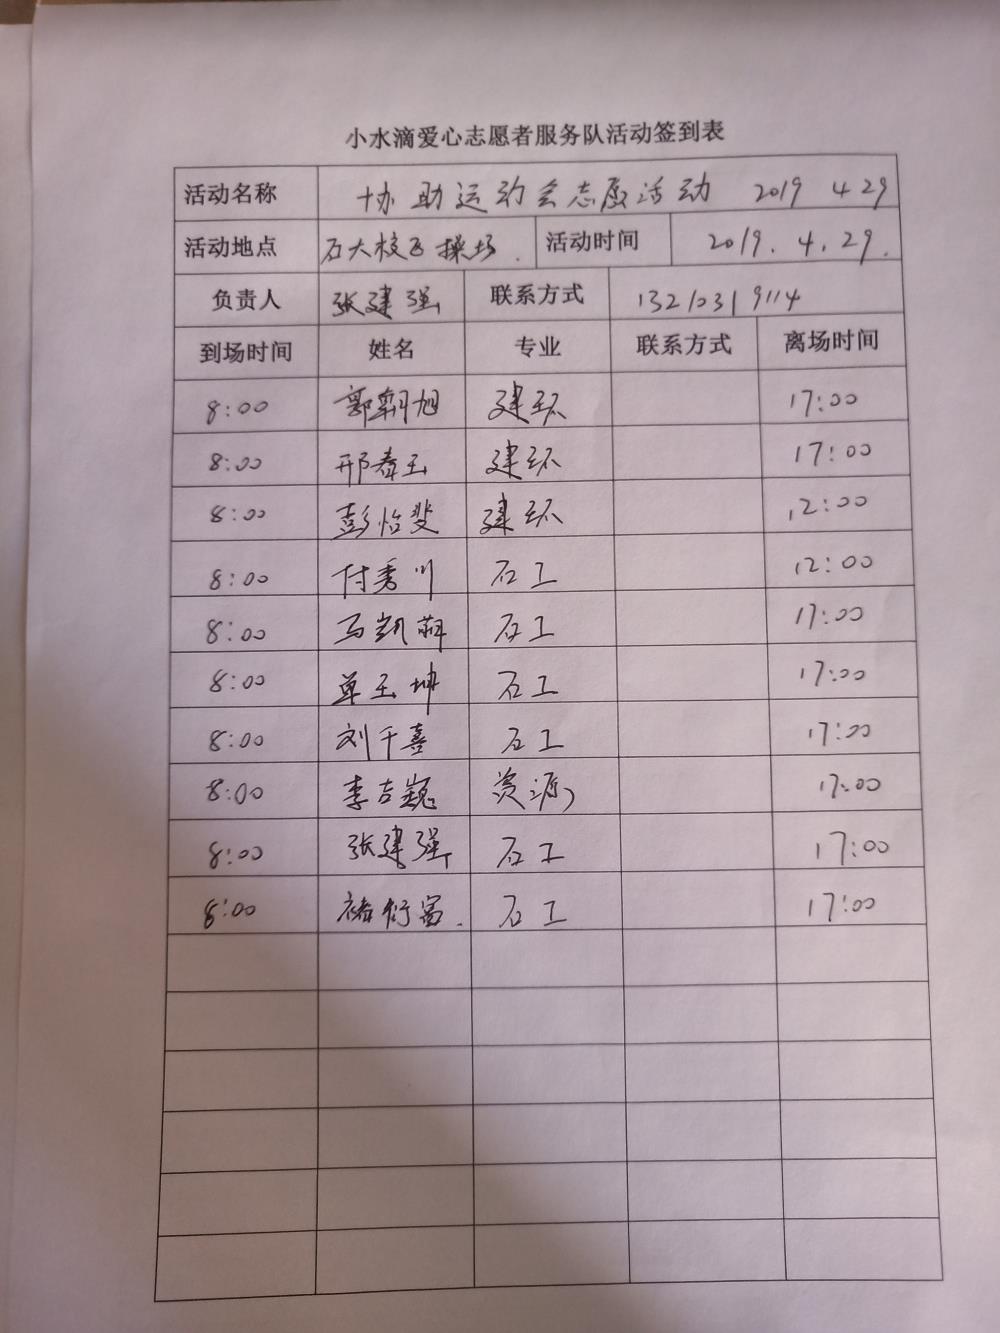 小水滴爱心志愿者服务队活动签到表
活动名称 协助运动会志愿活动 2019 4 29
活动地点 石大校区操场. 活动时间 2019.4.29.
负责人 张建强 联系方式 13210319114
到场时间 姓名 专业 联系方式 离场时间
8:00 郭朝旭 建环 17:00
8:00 邢春玉 建环 17:00
8:00 彭怡斐 建环 12:00
8:00 付秀川 石工 12:00
8:00 马凯萌 石工 17:00
8:00 单玉坤 石工 17:00
8:00 刘千喜 石工 17:00
8:00 李吉巍 资源 17:00
8:00 张建强 石工 17:00
8:00 褚衍富. 石工 17:00